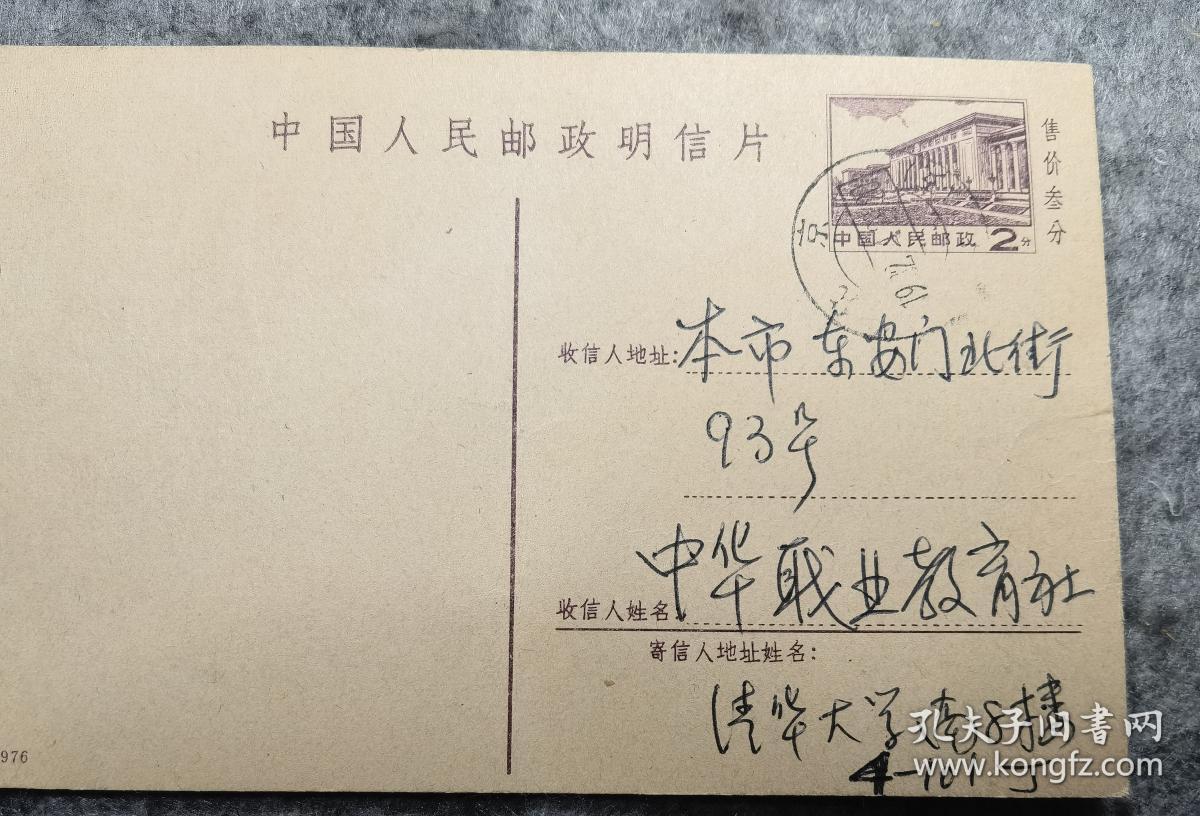 中国人民邮政明信片
售价叁分
中国人民邮政 2分
收信人地址:本市东安门北街
93号
收信人姓名:中华职业教育社
寄信人地址姓名:
清华大学南8楼
4-101-5
976
孔夫子旧书网
www.kongfz.com